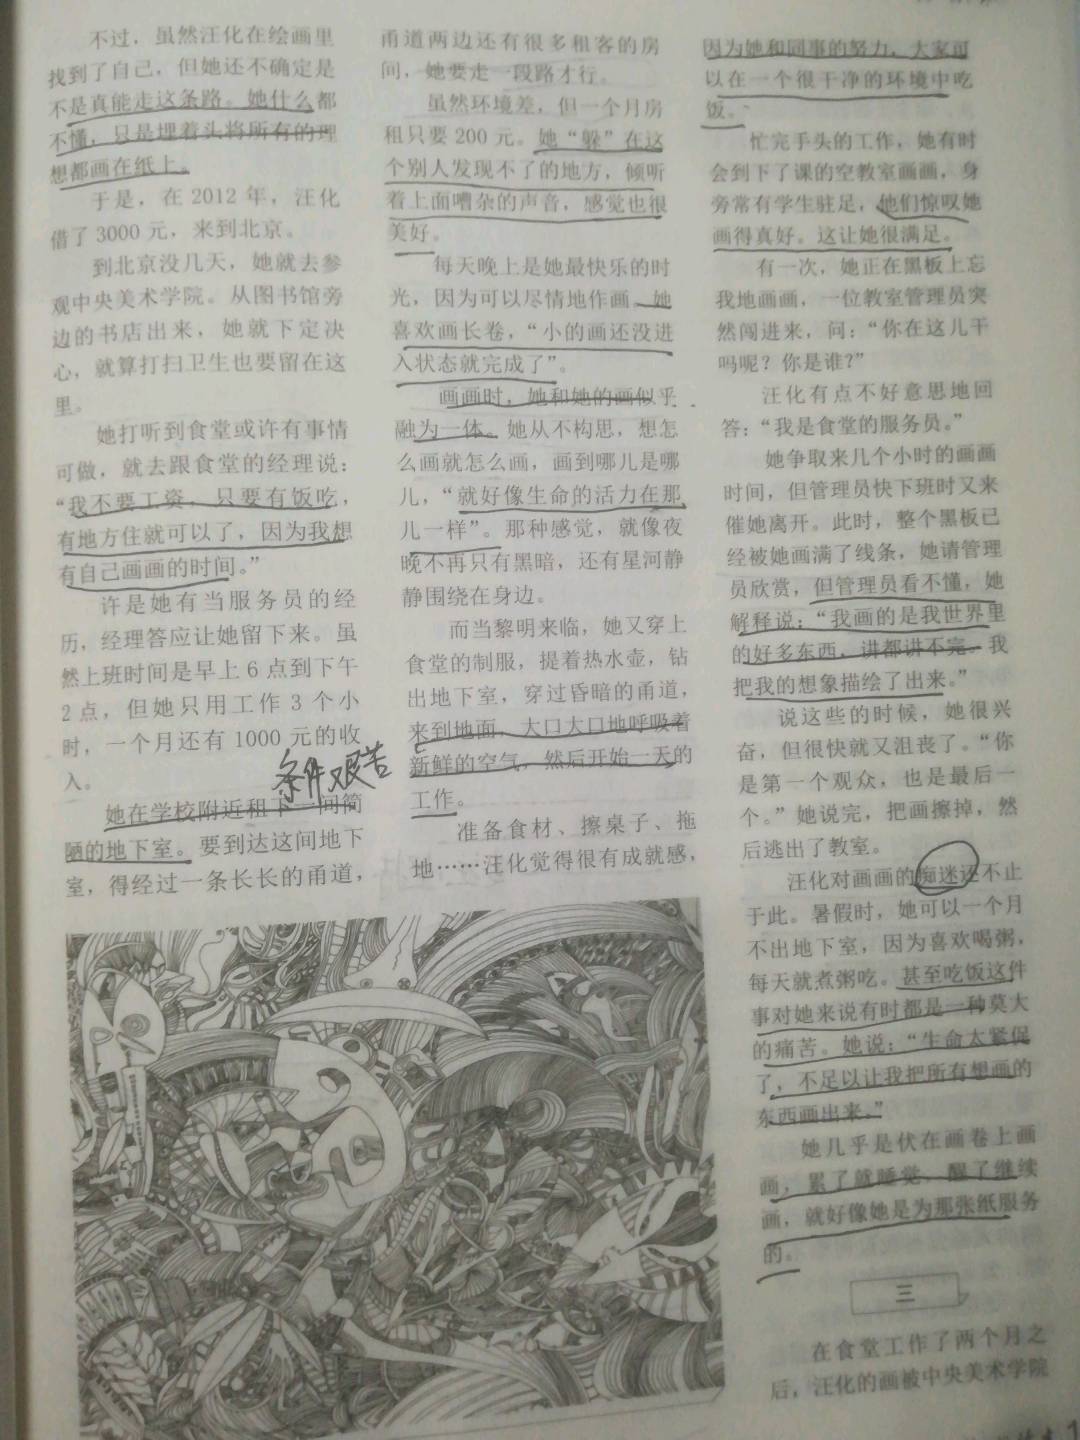 不过，虽然汪化在绘画里
找到了自己，但她还不确定是
不是真能走这条路。她什么都
不懂，只是埋着头将所有的理
想都画在纸上。
于是，在2012年，汪化
借了3000元，来到北京。
到北京没几天，她就去参
观中央美术学院。从图书馆旁
边的书店出来，她就下定决
心，就算打扫卫生也要留在这
里。
她打听到食堂或许有事情
可做，就去跟食堂的经理说：
“我不要工资，只要有饭吃，
有地方住就可以了，因为我想
有自己画画的时间。”
许是她有当服务员的经
历，经理答应让她留下来。虽
然上班时间是早上6点到下午
2点，但她只用工作3个小
时，一个月还有1000元的收
入。
条件艰苦
她在学校附近租下一间简
陋的地下室。要到达这间地下
室，得经过一条长长的甬道，
甬道两边还有很多租客的房
间，她要走一段路才行。
虽然环境差，但一个月房
租只要200元。她“躲”在这
个别人发现不了的地方，倾听
着上面嘈杂的声音，感觉也很
美好。
每天晚上是她最快乐的时
光，因为可以尽情地作画。她
喜欢画长卷，“小的画还没进
入状态就完成了”。
画画时，她和她的画似乎
融为一体。她从不构思，想怎
么画就怎么画，画到哪儿是哪
儿，“就好像生命的活力在那
儿一样”。那种感觉，就像夜
晚不再只有黑暗，还有星河静
静围绕在身边。
而当黎明来临，她又穿上
食堂的制服，提着热水壶，钻
出地下室，穿过昏暗的甬道，
来到地面，大口大口地呼吸着
新鲜的空气，然后开始一天的
工作。
准备食材、擦桌子、拖
地……汪化觉得很有成就感，
因为她和同事的努力，大家可
以在一个很干净的环境中吃
饭。
忙完手头的工作，她有时
会到下了课的空教室画画，身
旁常有学生驻足，他们惊叹她
画得真好。这让她很满足。
有一次，她正在黑板上忘
我地画画，一位教室管理员突
然闯进来，问：“你在这儿干
吗呢？你是谁？”
汪化有点不好意思地回
答：“我是食堂的服务员。”
她争取来几个小时的画画
时间，但管理员快下班时又来
催她离开。此时，整个黑板已
经被她画满了线条，她请管理
员欣赏，但管理员看不懂，她
解释说：“我画的是我世界里
的好多东西，讲都讲不完。我
把我的想象描绘了出来。”
说这些的时候，她很兴
奋，但很快就又沮丧了。“你
是第一个观众，也是最后一
个。”她说完，把画擦掉，然
后逃出了教室。
汪化对画画的痴迷还不止
于此。暑假时，她可以一个月
不出地下室，因为喜欢喝粥，
每天就煮粥吃。甚至吃饭这件
事对她来说有时都是一种莫大
的痛苦。她说：“生命太紧促
了，不足以让我把所有想画的
东西画出来。”
她几乎是伏在画卷上画
画，累了就睡觉，醒了继续
画，就好像她是为那张纸服务
的。
三
在食堂工作了两个月之
后，汪化的画被中央美术学院